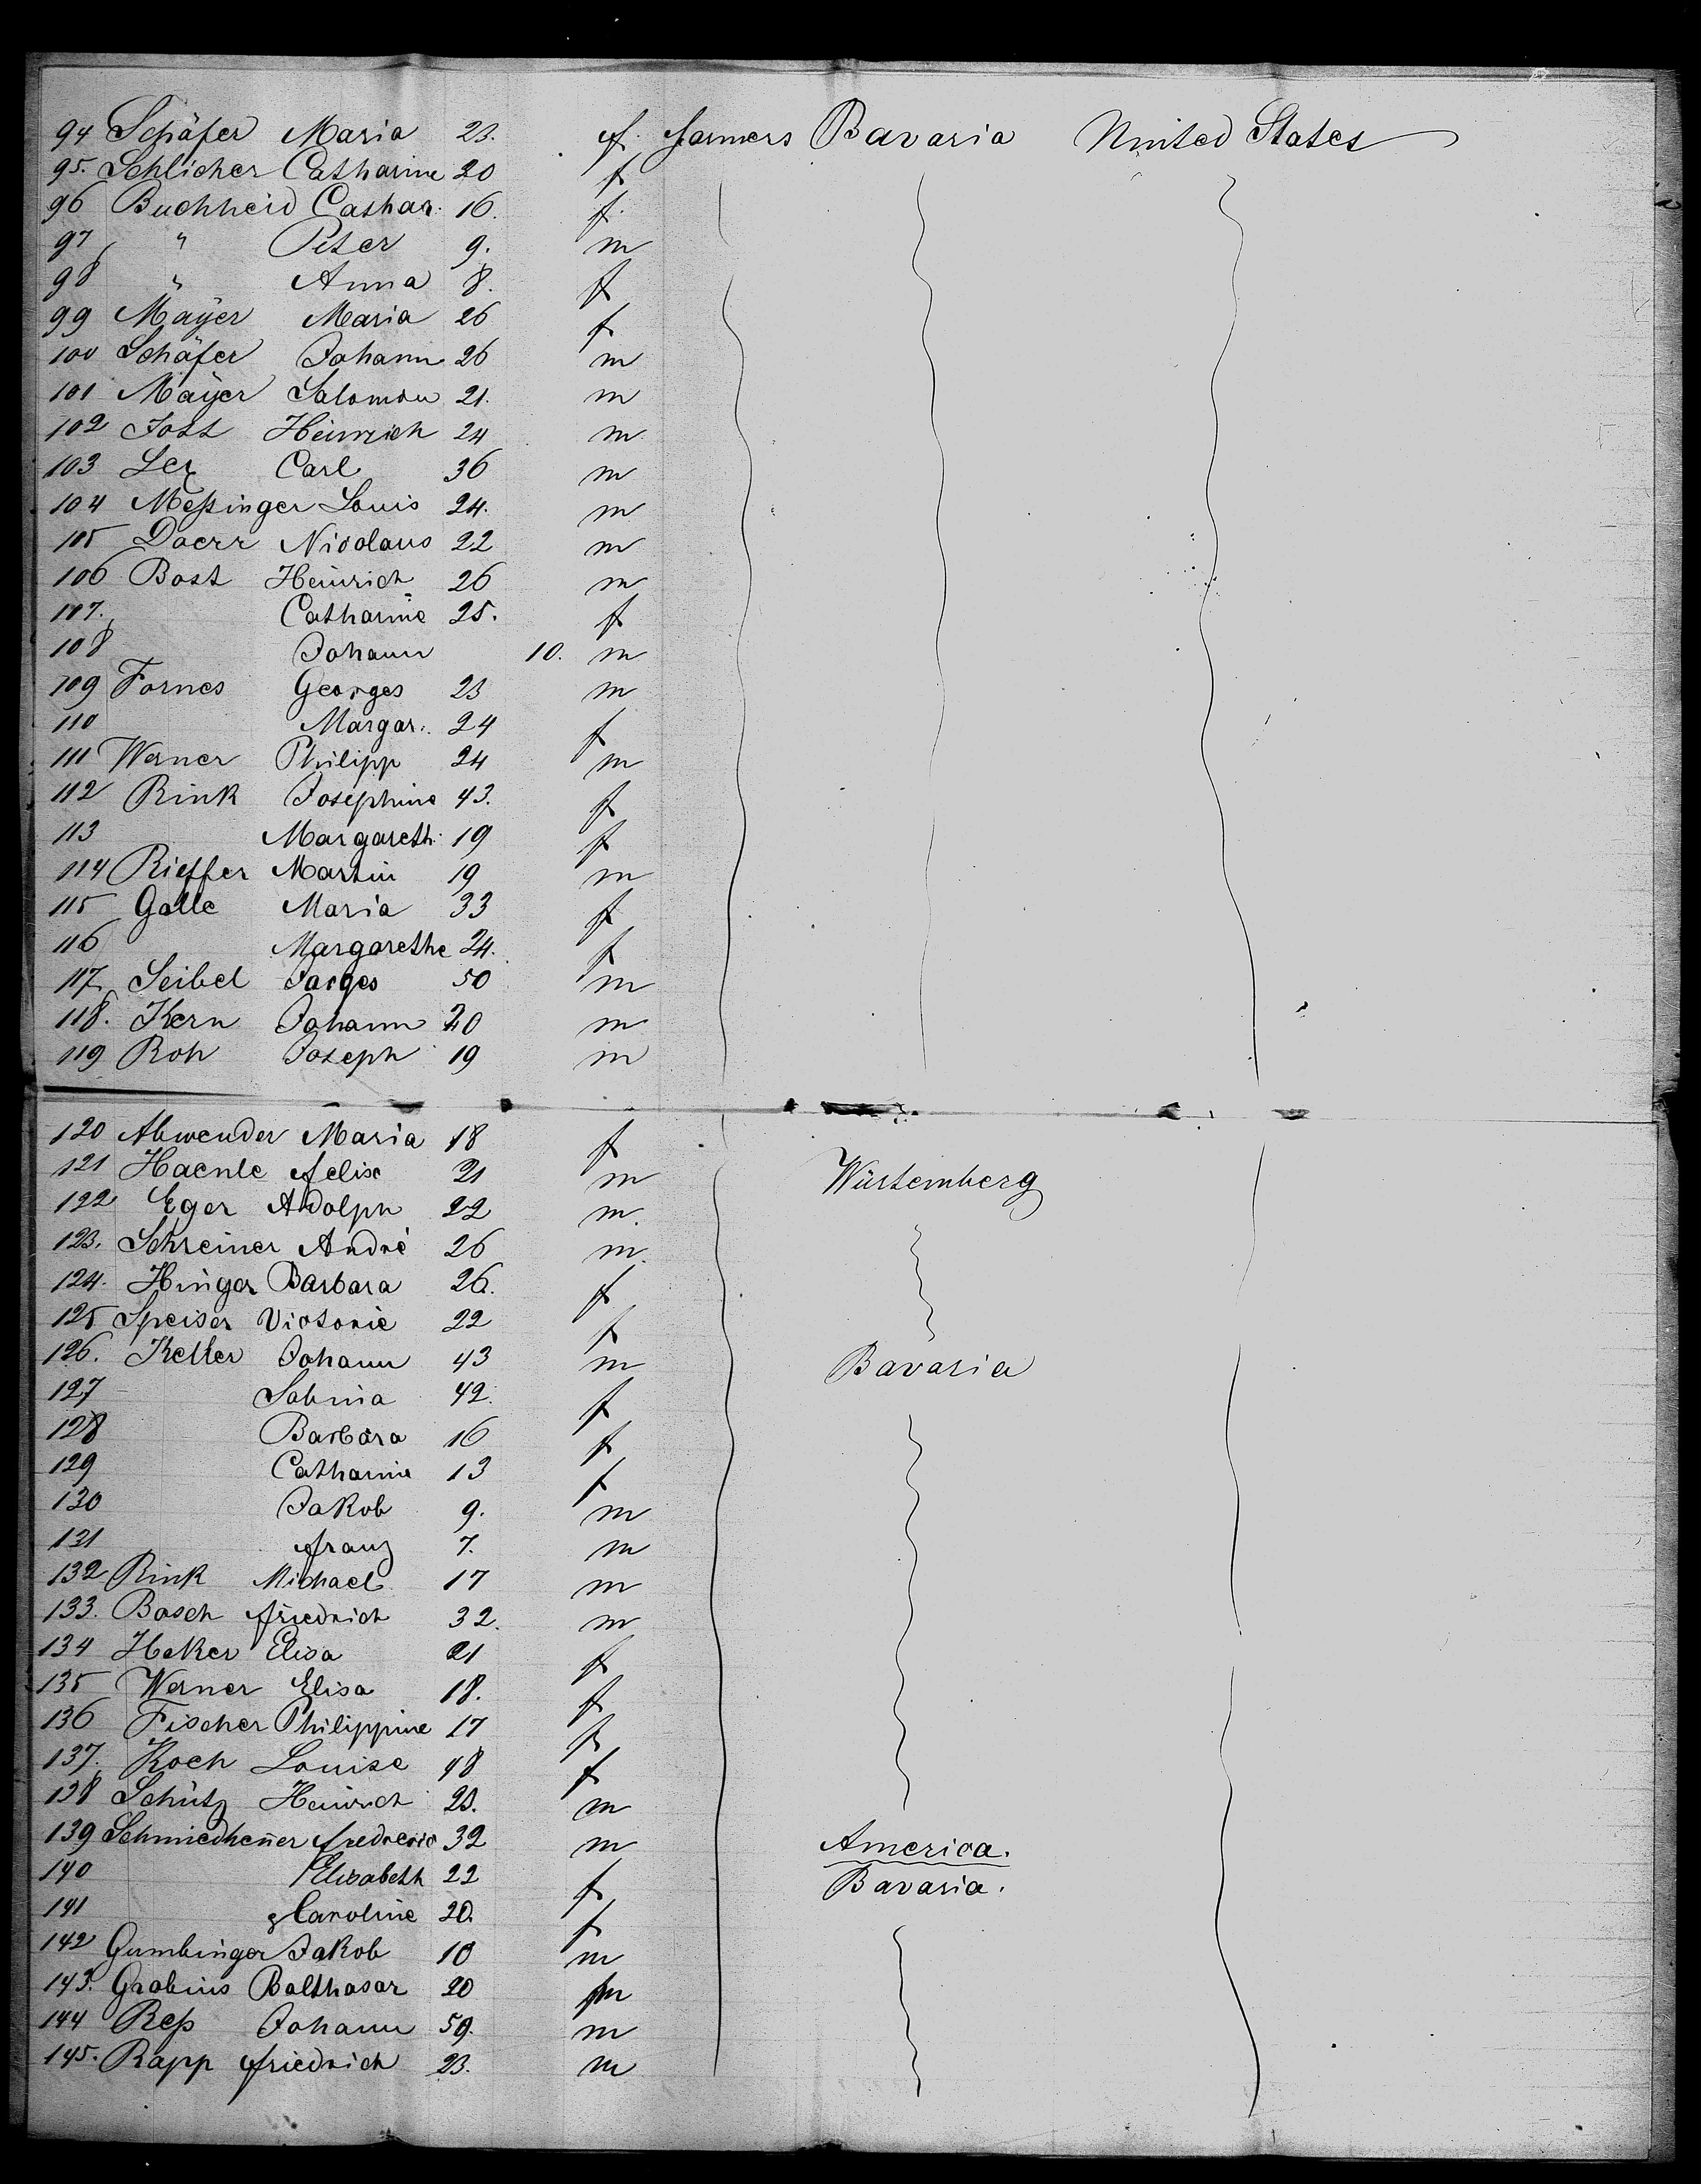 94 Schäfer Maria 23. f. farmers Bavaria United States
95. Schlicher Catharine 20 f
96 Buchheid Cathar. 16. f.
97 " Peter 9. m
98 " Anna 8. f
99 Mayer Maria 26 f
100 Schäfer Johann 26 m
101 Mayer Salomon 21. m
102 Jost Heinrich 24 m
103 Lex Carl 36 m
104 Meßinger Louis 24. m
105 Doerr Nicolaus 22 m
106 Bost Heinrich 26 m
107. Catharine 25. f
108 Johann 10. m
109 Fornes Georges 23 m
110 Margar. 24 f
111 Werner Philipp 24 m
112 Rink Josephine 43. f
113 Margareth. 19 f
114 Rieffer Martin 19 m
115 Galle Maria 33 f
116 Margarethe 24. f
117. Seibel 50 m
118. Kern Johann 20 m
119 Roh Joseph 19 m
120 Abwender Maria 18 f
121 Haenle Felix 21 m Würtemberg
122 Eger Adolph 22 m.
123. Schreiner André 26 m.
124. Hinger Barbara 26. f
125 Speiser Victorie 22 f
126. Keller Johann 43 m Bavaria
127 Sabina 42. f
128 Barbara 16 f
129 Catharine 13 f
130 Jakob 9. m
131 Franz 7. m
132 Rink Michael 17 m
133. Bosch Friedrich 32. m
134 Heker Elisa 21 f
135 Werner Elisa 18. f
136 Fischer Philippine 17 f
137. Koch Louise 18 f
138 Schütz Heinrich 23. m
139 Schmiedheñer Frederic 32 m America.
140 Elisabeth 22 f Bavaria.
141 Caroline 20. f
142 Gumbinger Jakob 10 m
143. Grabius Balthasar 20 m
144 Reß Johann 59. m
145. Rapp Friedrich 23. m